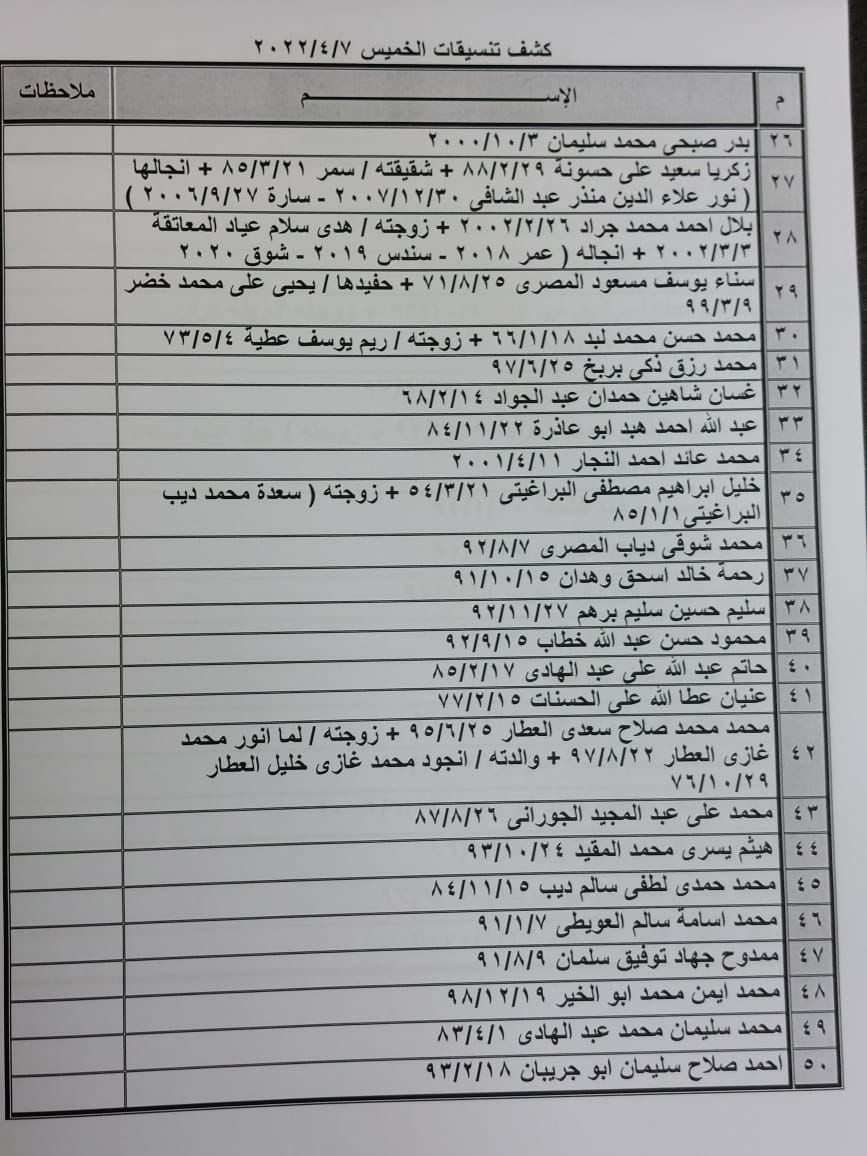 كشف تنسيقات الخميس ٢٠٢٢/٤/٧
م الإســـــم ملاحظات
٢٦ بدر صبحى محمد سليمان ٢٠٠٠/١٠/٣
٢٧ زكريا سعيد على حسونة ٨٨/٢/٢٩ + شقيقته / سمر ٨٥/٣/٢١ + انجالها
( نور علاء الدين منذر عبد الشافى ٢٠٠٧/١٢/٣٠ - سارة ٢٠٠٦/٩/٢٧ )
٢٨ بلال احمد محمد جراد ٢٠٠٢/٢/٢٦ + زوجته / هدى سلام عياد المعاتقة
٢٠٠٢/٣/٣ + انجاله ( عمر ٢٠١٨ - سندس ٢٠١٩ - شوق ٢٠٢٠
٢٩ سناء يوسف مسعود المصرى ٧١/٨/٢٥ + حفيدها / يحيى على محمد خضر
٩٩/٣/٩
٣٠ محمد حسن محمد لبد ٦٦/١/١٨ + زوجته / ريم يوسف عطية ٧٣/٥/٤
٣١ محمد رزق ذكى بربخ ٩٧/٦/٢٥
٣٢ غسان شاهين حمدان عبد الجواد ٦٨/٢/١٤
٣٣ عبد الله احمد هبد ابو عاذرة ٨٤/١١/٢٢
٣٤ محمد عائد احمد النجار ٢٠٠١/٤/١١
٣٥ خليل ابراهيم مصطفى البراغيتى ٥٤/٣/٢١ + زوجته ( سعدة محمد ديب
البراغيتى ٨٥/١/١
٣٦ محمد شوقى دياب المصرى ٩٢/٨/٧
٣٧ رحمة خالد اسحق وهدان ٩١/١٠/١٥
٣٨ سليم حسين سليم برهم ٩٢/١١/٢٧
٣٩ محمود حسن عبد الله خطاب ٩٢/٩/١٥
٤٠ حاتم عبد الله على عبد الهادى ٨٥/٢/١٧
٤١ عنيان عطا الله على الحسنات ٧٧/٢/١٥
٤٢ محمد محمد صلاح سعدى العطار ٩٥/٦/٢٥ + زوجته / لما انور محمد
غازى العطار ٩٧/٨/٢٢ + والدته / انجود محمد غازى خليل العطار
٧٦/١٠/٢٩
٤٣ محمد على عبد المجيد الجورانى ٨٧/٨/٢٦
٤٤ هيثم يسرى محمد المقيد ٩٣/١٠/٢٤
٤٥ محمد حمدى لطفى سالم ديب ٨٤/١١/١٥
٤٦ محمد اسامة سالم العويطى ٩١/١/٧
٤٧ ممدوح جهاد توفيق سلمان ٩١/٨/٩
٤٨ محمد ايمن محمد ابو الخير ٩٨/١٢/١٩
٤٩ محمد سليمان محمد عبد الهادى ٨٣/٤/١
٥٠ احمد صلاح سليمان ابو جريبان ٩٣/٢/١٨